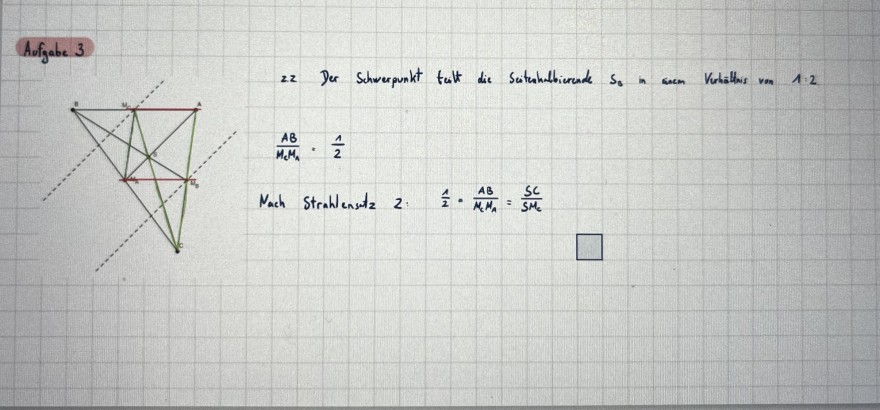 Aufgabe 3
zz Der Schwerpunkt teilt die Seitenhalbierende S_a in einem Verhältnis von 1:2
B M_c A
AB/M_cM_A = 1/2
S
M_B
Nach Strahlensatz 2: 1/2 = AB/M_cM_A = SC/SM_c
C